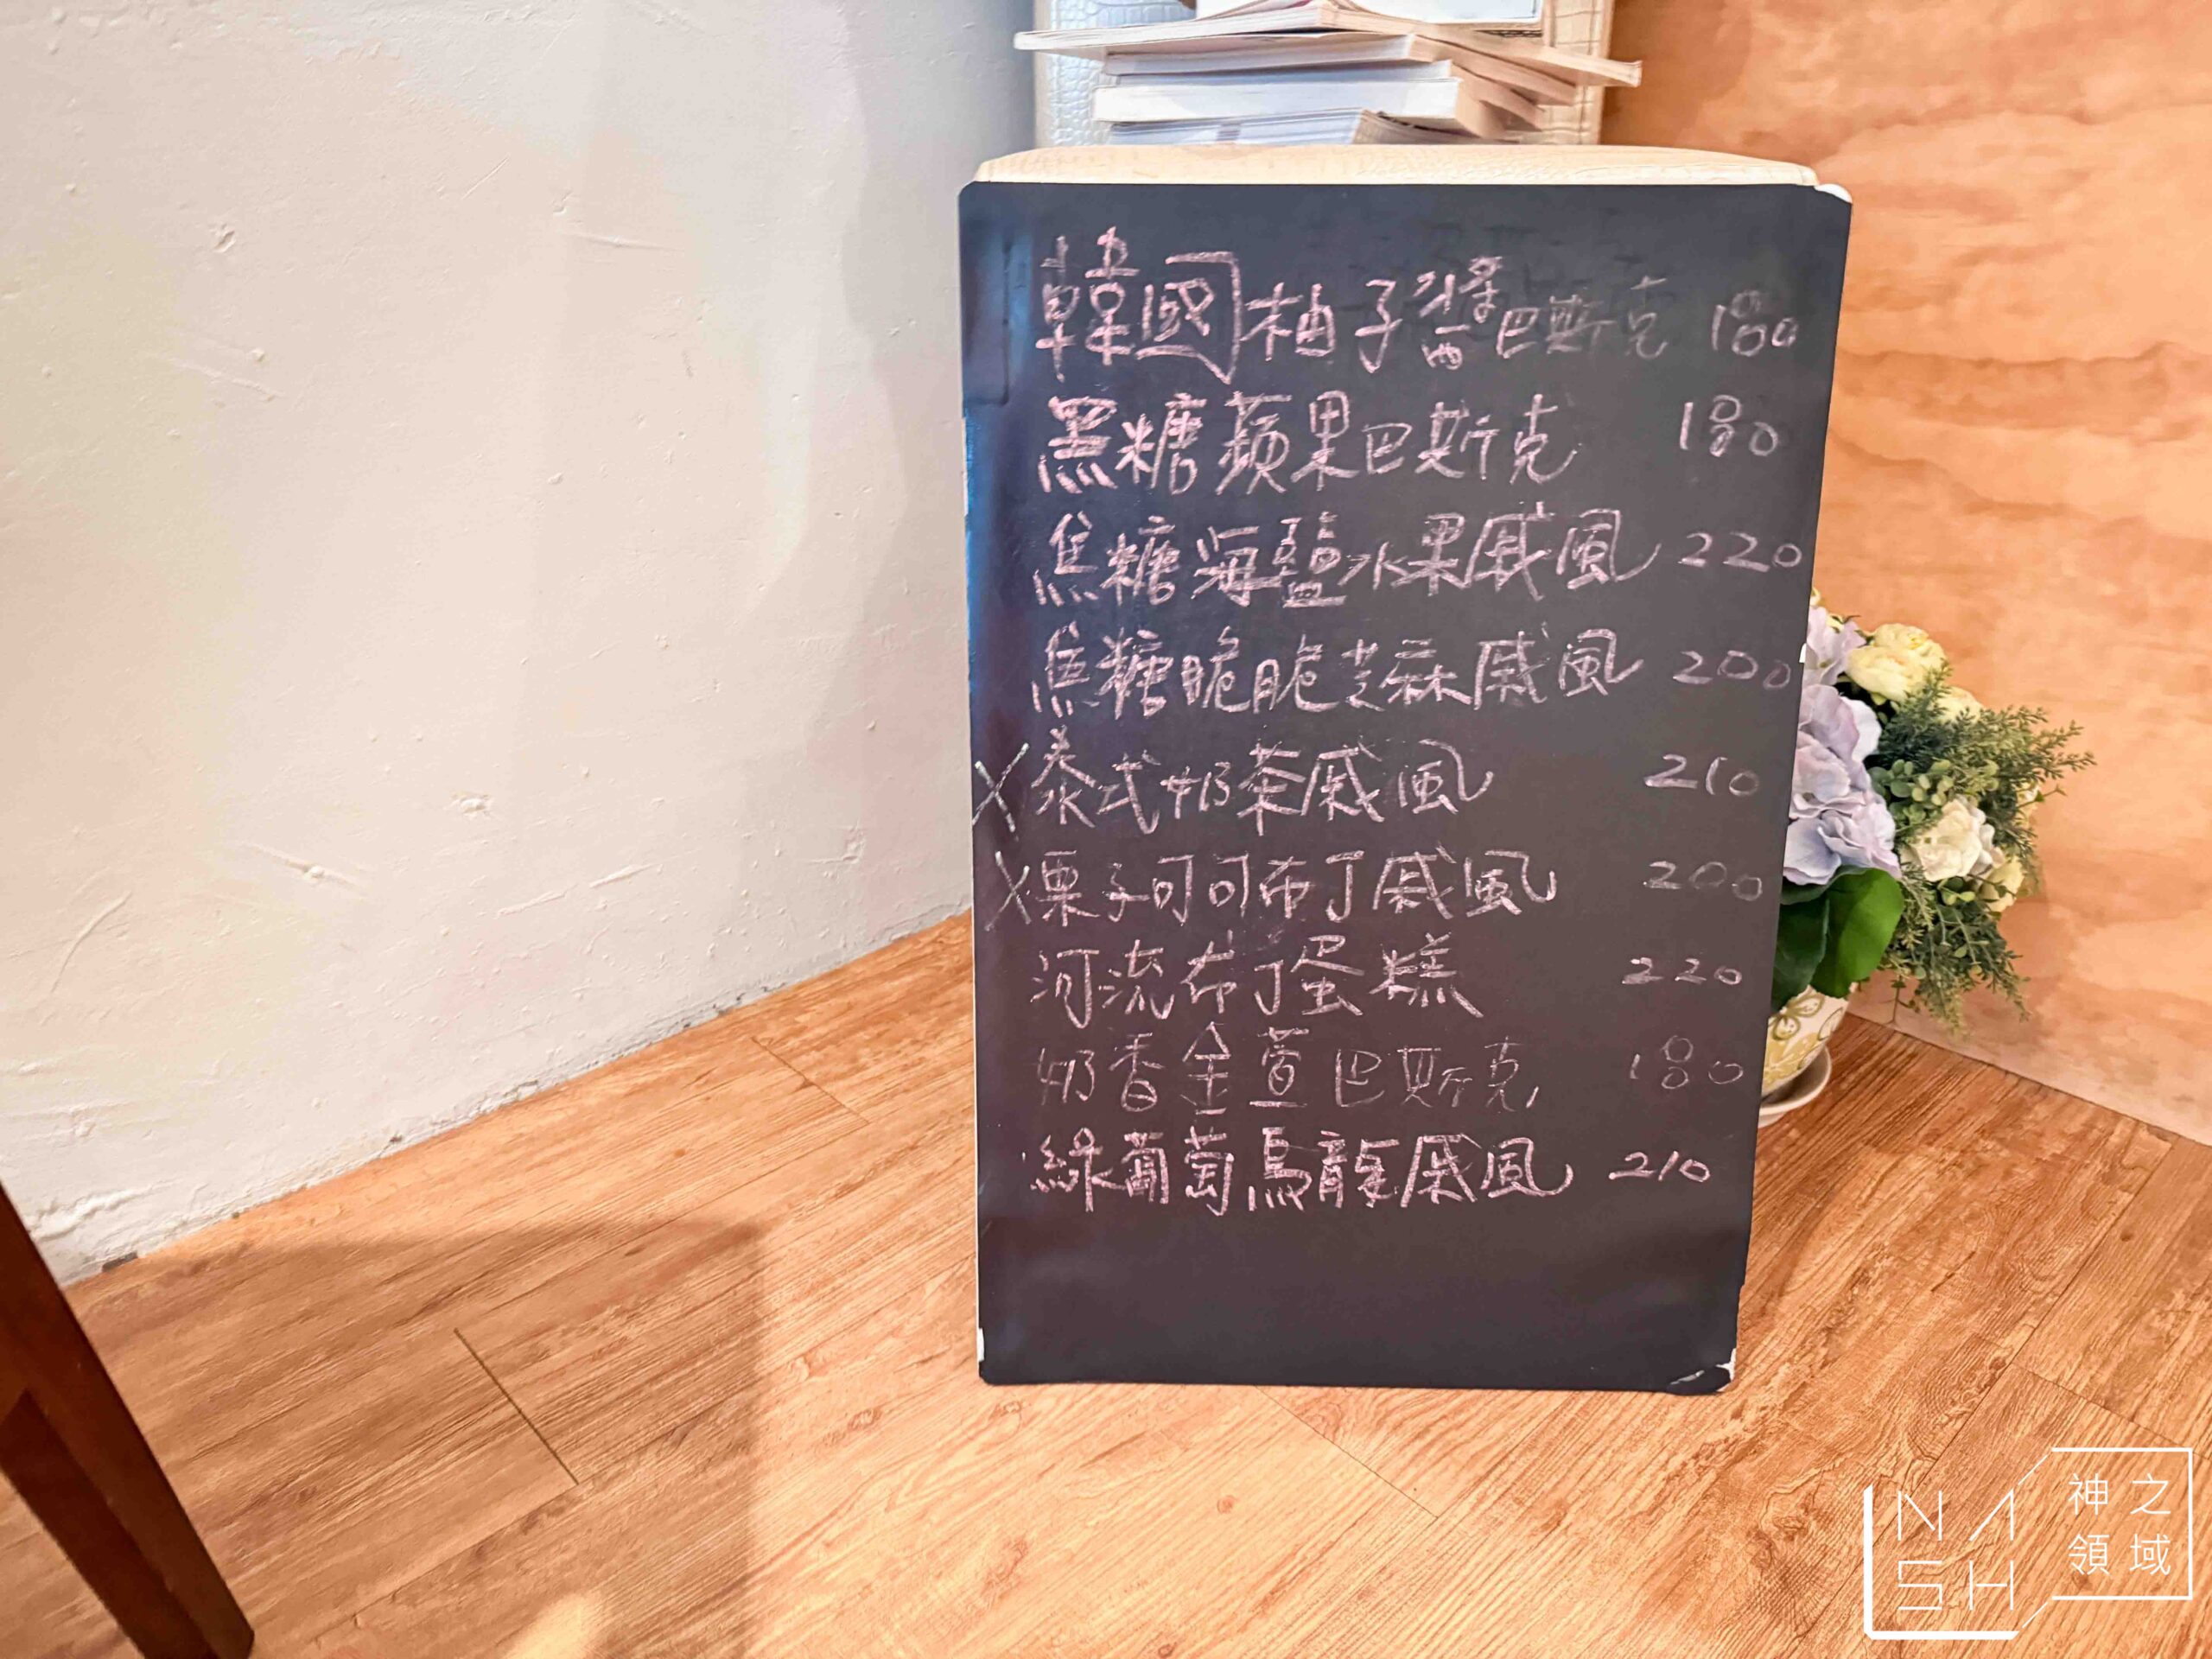 韓國柚子醬巴斯克 180
黑糖蘋果巴斯克 180
焦糖海鹽水果戚風 220
焦糖脆脆芝麻戚風 200
X泰式奶茶戚風 210
X栗子可可布丁戚風 200
河流布丁蛋糕 220
奶香金萱巴斯克 180
綠葡萄烏龍戚風 210
NASH
神之領域